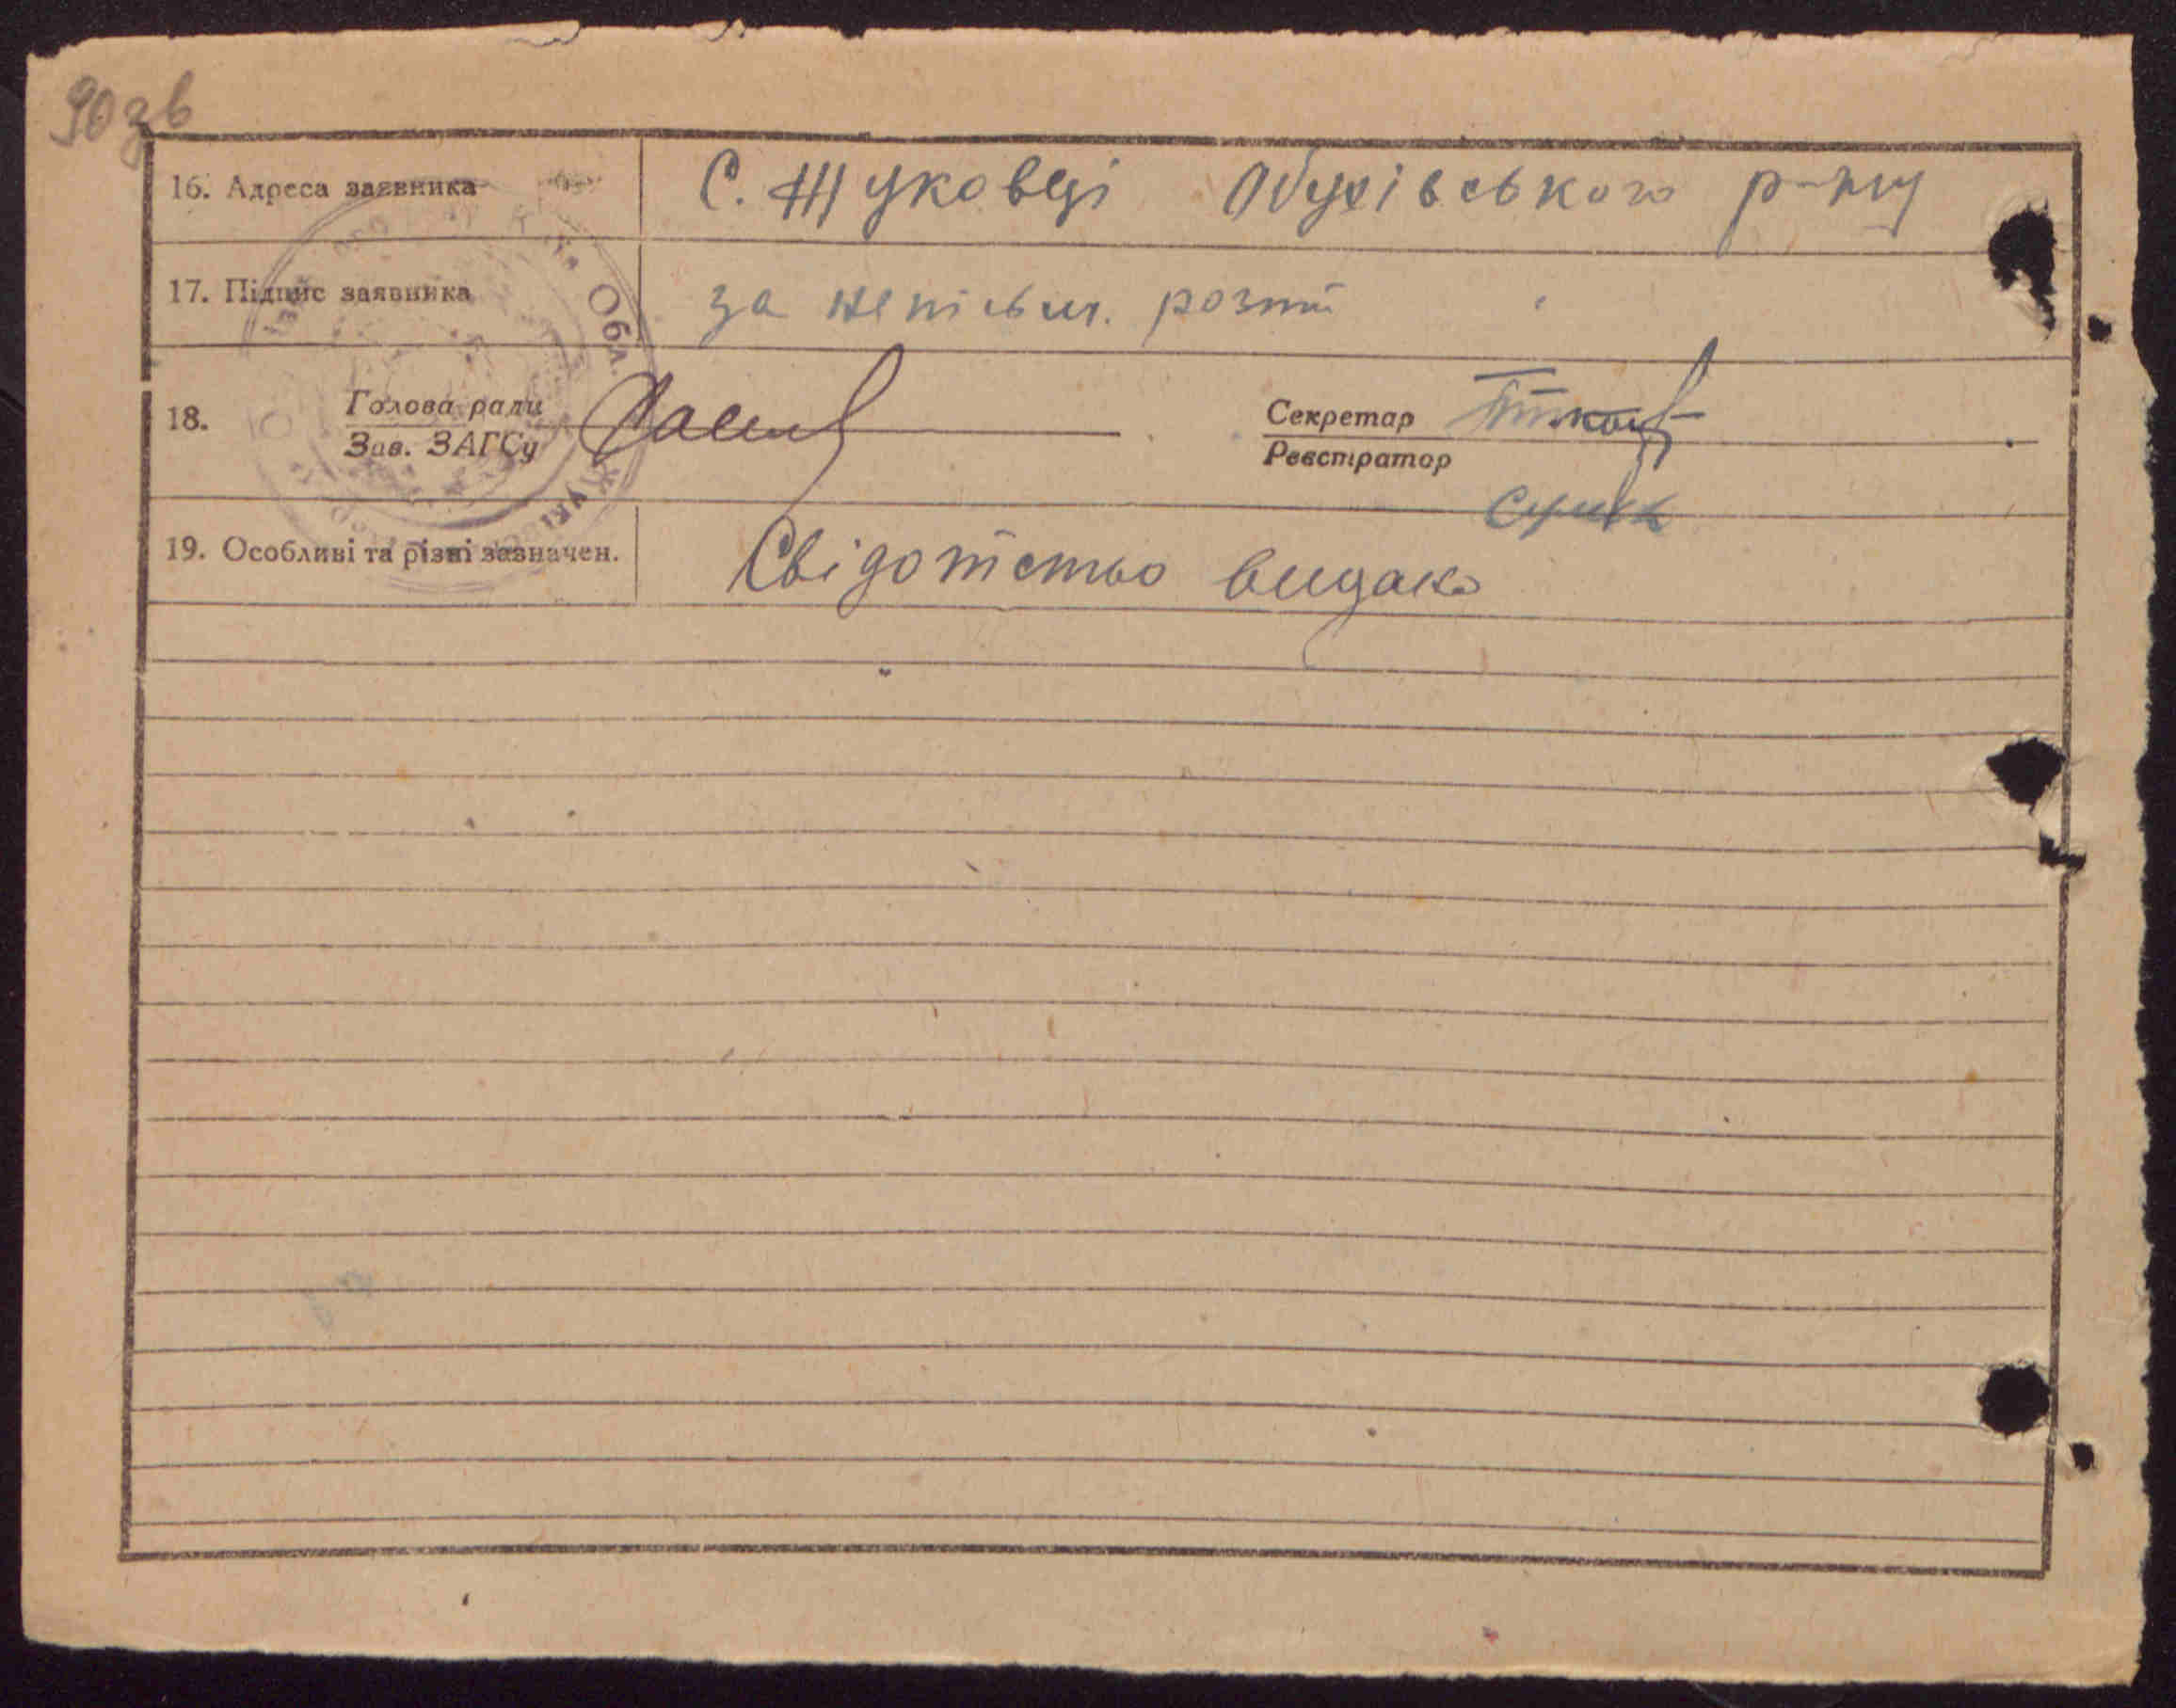 90 зв
16. Адреса заявника С. Жуковці Обухівського р-ну
17. Підпис заявника за непісьм. розпи
18. Голова ради Секретар
Зав. ЗАГСу Реєстратор
19. Особливі та різні зазначен. Свідотство видано
Обл.